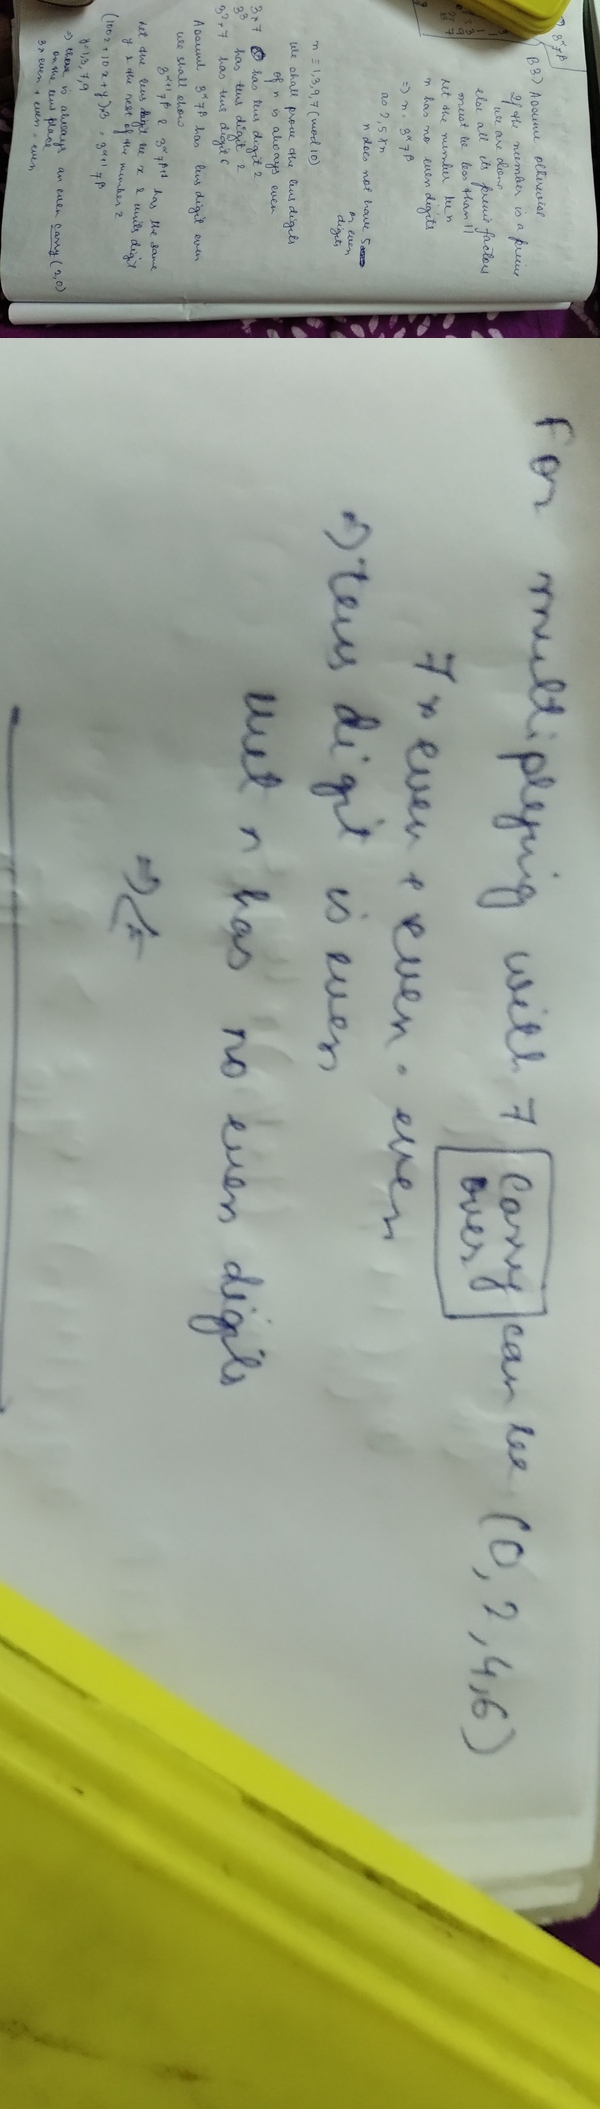 B3) Assume otherwise
If the number is a prime
we are done
else all its prime factors
must be less than 11
let the number be n
n has no even digits
⇒ n = 3^α 7^β
as 2, 5 ∤ n
n does not have 5
or even
digits
n ≡ 1,3,9,7 (mod 10)
We shall prove the tens digits
of n is always even
3×7 has tens digit 2
3³ has tens digit 2
3²×7 has tens digit 6
Assume 3^α 7^β has tens digit even
we shall show
3^α+1 7^β & 3^α 7^β+1 has the same
let the tens digit be x & units digit
y & the rest of the number z
(100z + 10x + y) × 3 = 3^α+1 7^β
y = 1,3,7,9
⇒ there is always an even carry (2,0)
on the tens place
3 × even + even = even
For multiplying with 7 carry over can be (0, 2, 4, 6)
7 × even + even = even
⇒ tens digit is even
but n has no even digits
⇒⇐